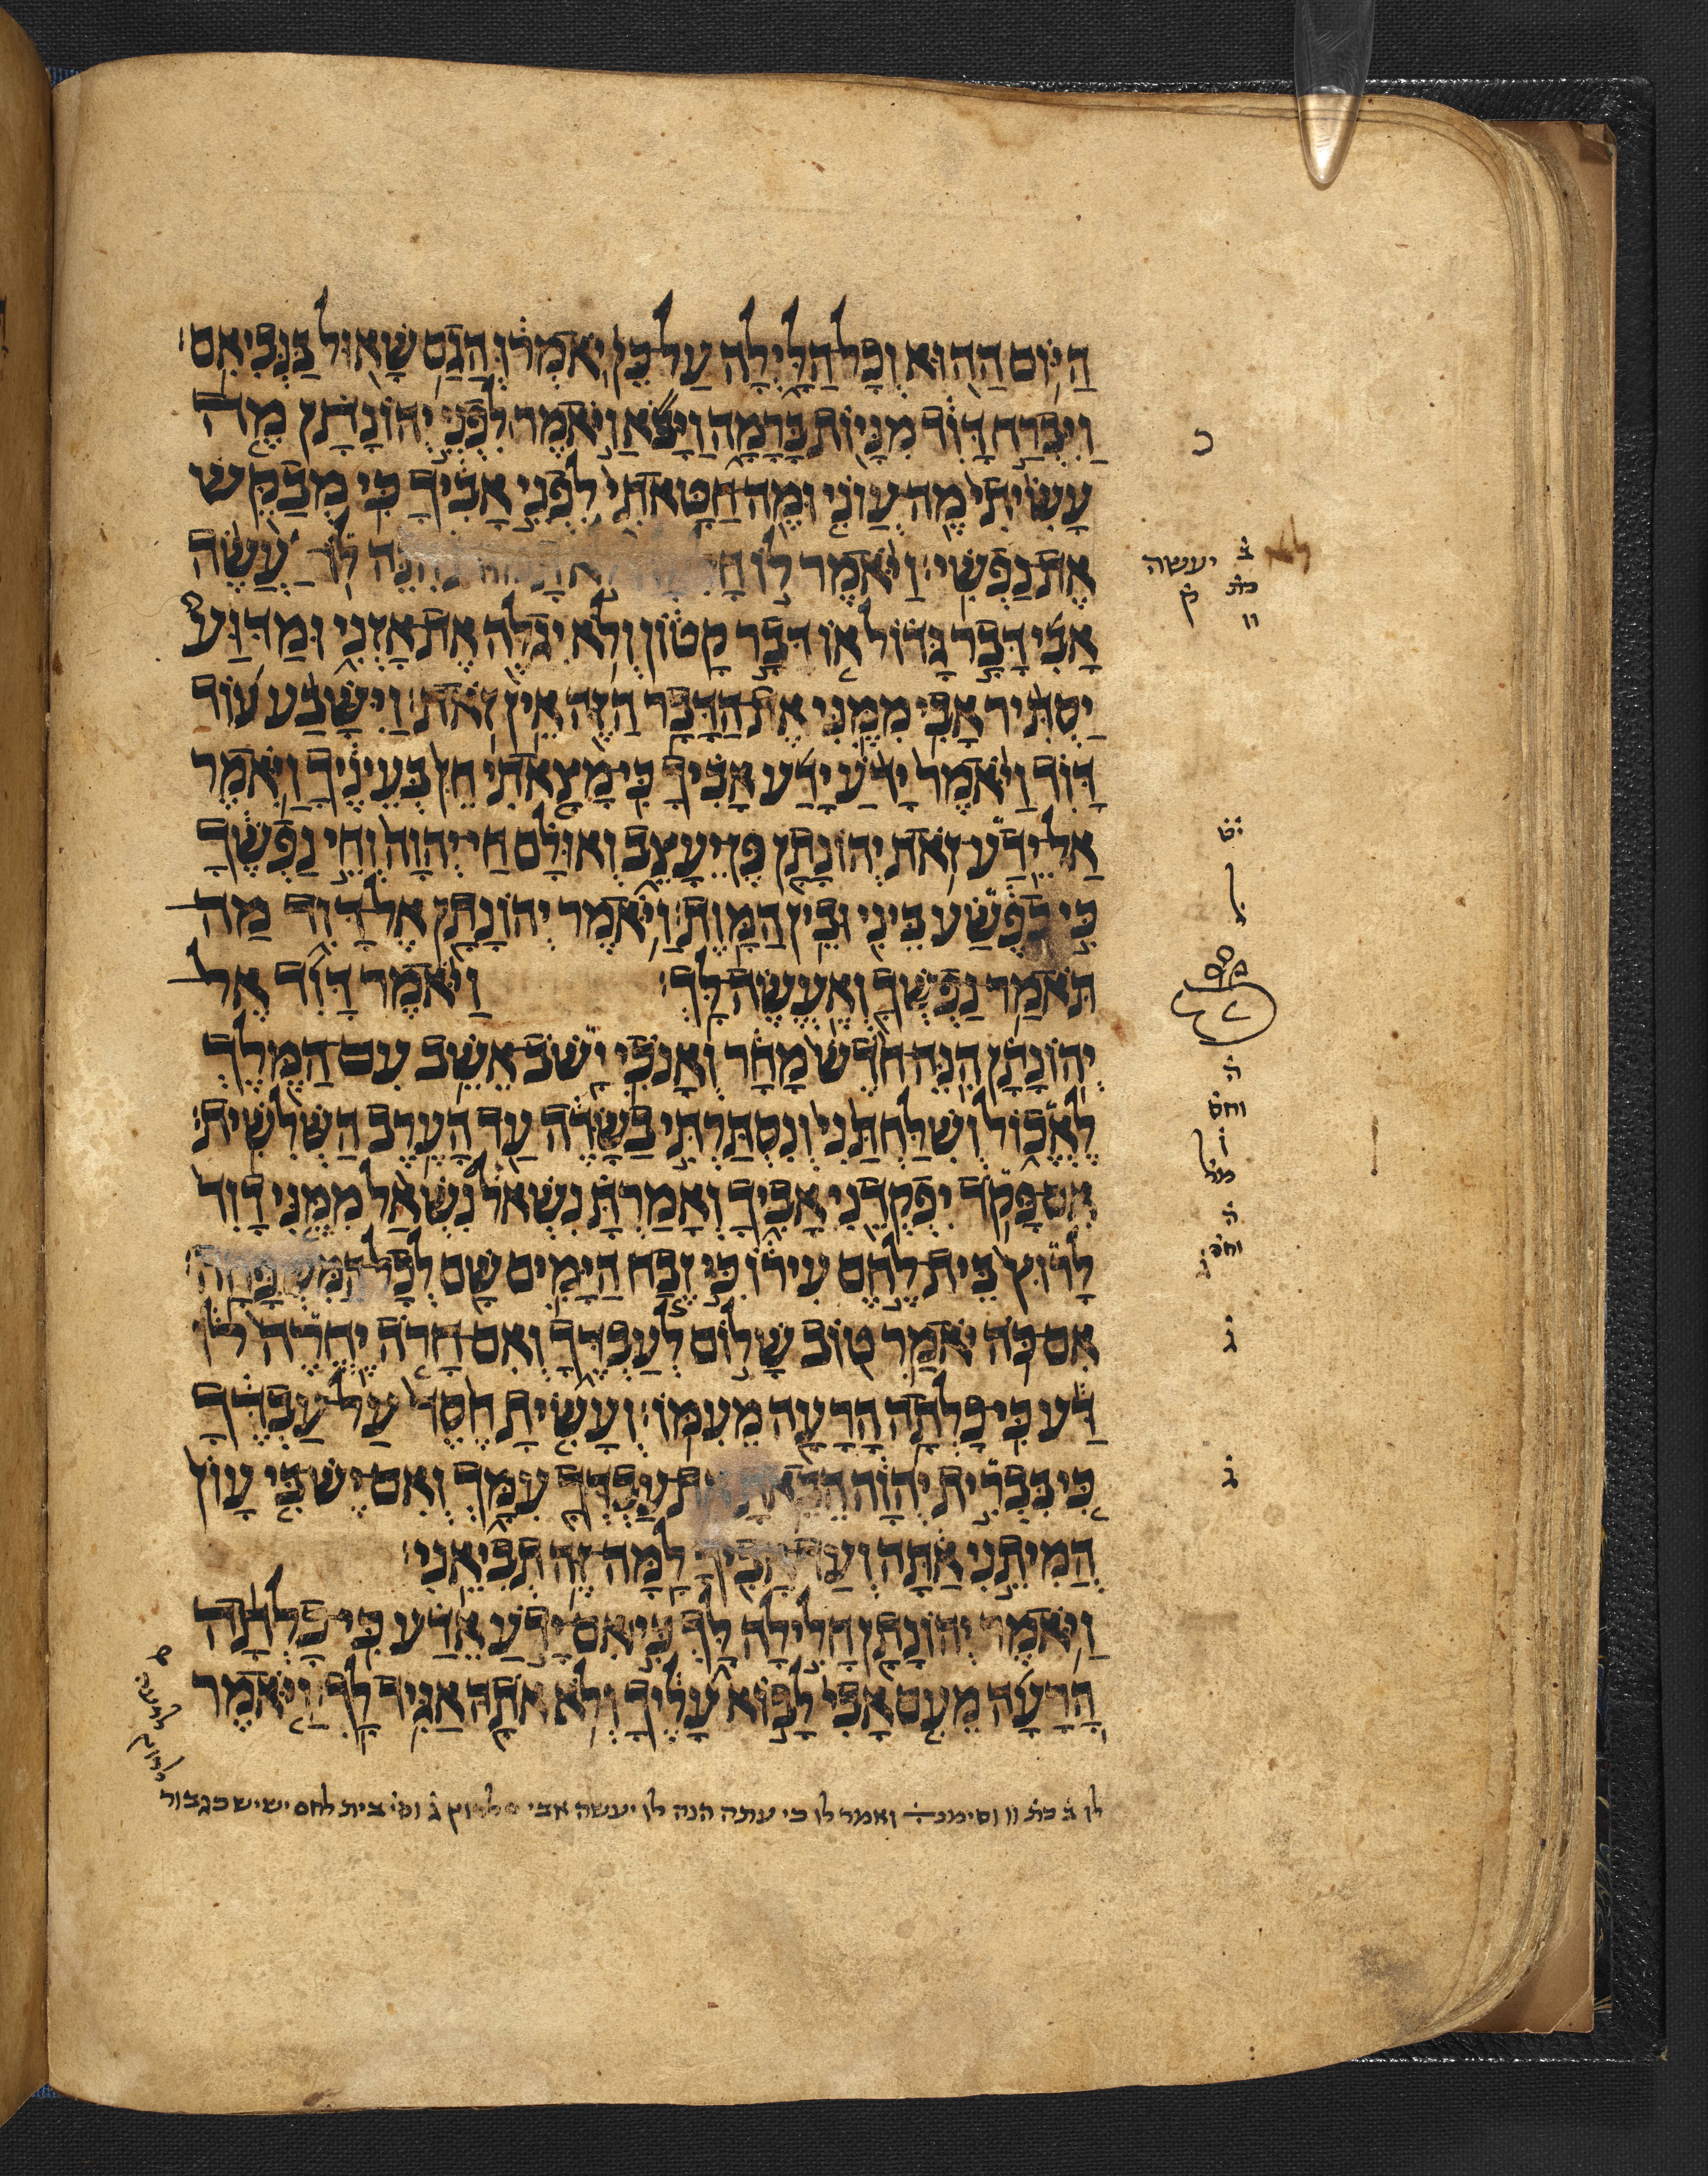 הַיּוֹם הַהוּא וְכָל הַלַּיְלָה עַל כֵּן יֹאמְרוּ הֲגַם שָׁאוּל בַּנְּבִיאִם׃
וַיִּבְרַח דָּוִד מִנָּיוֹת בָּרָמָה וַיָּבֹא וַיֹּאמֶר לִפְנֵי יְהוֹנָתָן מֶה
עָשִׂיתִי מֶה עֲוֹנִי וּמֶה חַטָּאתִי לִפְנֵי אָבִיךָ כִּי מְבַקֵּשׁ
אֶת נַפְשִׁי׃ וַיֹּאמֶר לוֹ הִנֵּה לוֹ יַעֲשֶׂה
אָבִי דָּבָר גָּדוֹל אוֹ דָּבָר קָטוֹן וְלֹא יִגְלֶה אֶת אָזְנִי וּמַדּוּעַ
יַסְתִּיר אָבִי מִמֶּנִּי אֶת הַדָּבָר הַזֶּה אֵין זֹאת׃ וַיִּשָּׁבַע עוֹד
דָּוִד וַיֹּאמֶר יָדֹעַ יָדַע אָבִיךָ כִּי מָצָאתִי חֵן בְּעֵינֶיךָ וַיֹּאמֶר
אַל יֵדַע זֹאת יְהוֹנָתָן פֶּן יֵעָצֵב וְאוּלָם חַי יְהוָה וְחֵי נַפְשֶׁךָ
כִּי כְפֶשַׂע בֵּינִי וּבֵין הַמָּוֶת׃ וַיֹּאמֶר יְהוֹנָתָן אֶל דָּוִד מַה
תֹּאמַר נַפְשְׁךָ וְאֶעֱשֶׂה לָּךְ׃ וַיֹּאמֶר דָּוִד אֶל
יְהוֹנָתָן הִנֵּה חֹדֶשׁ מָחָר וְאָנֹכִי יָשֹׁב אֵשֵׁב עִם הַמֶּלֶךְ
לֶאֱכוֹל וְשִׁלַּחְתַּנִי וְנִסְתַּרְתִּי בַשָּׂדֶה עַד הָעֶרֶב הַשְּׁלִשִׁית׃
אִם פָּקֹד יִפְקְדֵנִי אָבִיךָ וְאָמַרְתָּ נִשְׁאֹל נִשְׁאַל מִמֶּנִּי דָוִד
לָרוּץ בֵּית לֶחֶם עִירוֹ כִּי זֶבַח הַיָּמִים שָׁם לְכָל הַמִּשְׁפָּחָה׃
אִם כֹּה יֹאמַר טוֹב שָׁלוֹם לְעַבְדֶּךָ וְאִם חָרֹה יֶחֱרֶה לוֹ
דַּע כִּי כָלְתָה הָרָעָה מֵעִמּוֹ׃ וְעָשִׂיתָ חֶסֶד עַל עַבְדֶּךָ
כִּי בִּבְרִית יְהוָה הֵבֵאתָ אֶת עַבְדְּךָ עִמָּךְ וְאִם יֶשׁ בִּי עָוֹן
הֲמִיתֵנִי אַתָּה וְעַד אָבִיךָ לָמָּה זֶּה תְבִיאֵנִי׃
וַיֹּאמֶר יְהוֹנָתָן חָלִילָה לָּךְ כִּי אִם יָדֹעַ אֵדַע כִּי כָלְתָה
הָרָעָה מֵעִם אָבִי לָבוֹא עָלֶיךָ וְלֹא אֹתָהּ אַגִּיד לָךְ׃ וַיֹּאמֶר
כ
ב יעשה
כת ק
וו
יט
ל
ה
וחס
ו
מל
ה
וחס
ג
ג
לו ב כת וו וסימנ ואמר לו כי עתה הנה לו יעשה אבי לרוץ ג וס בית לחם שיש כגבור